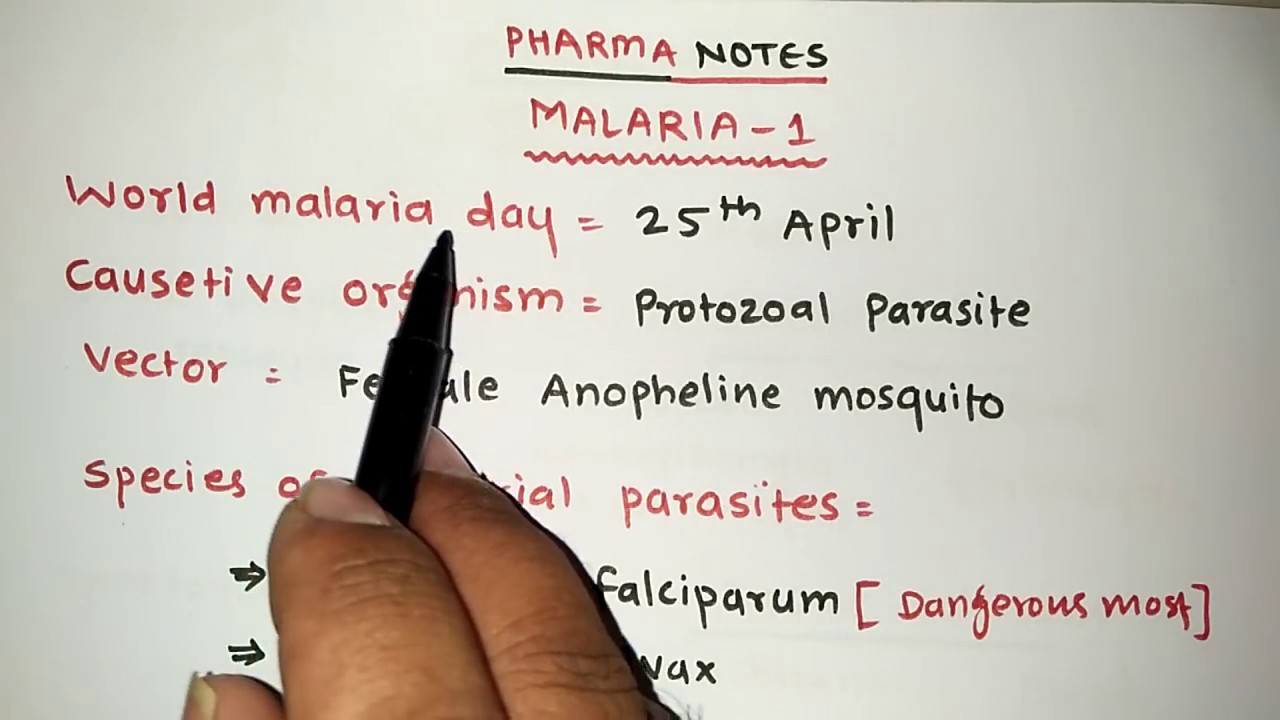 PHARMA NOTES
MALARIA-1
World malaria day = 25th April
Causetive organism = Protozoal Parasite
Vector : Female Anopheline mosquito
Species parasites =
⇒ falciparum [Dangerous most]
⇒